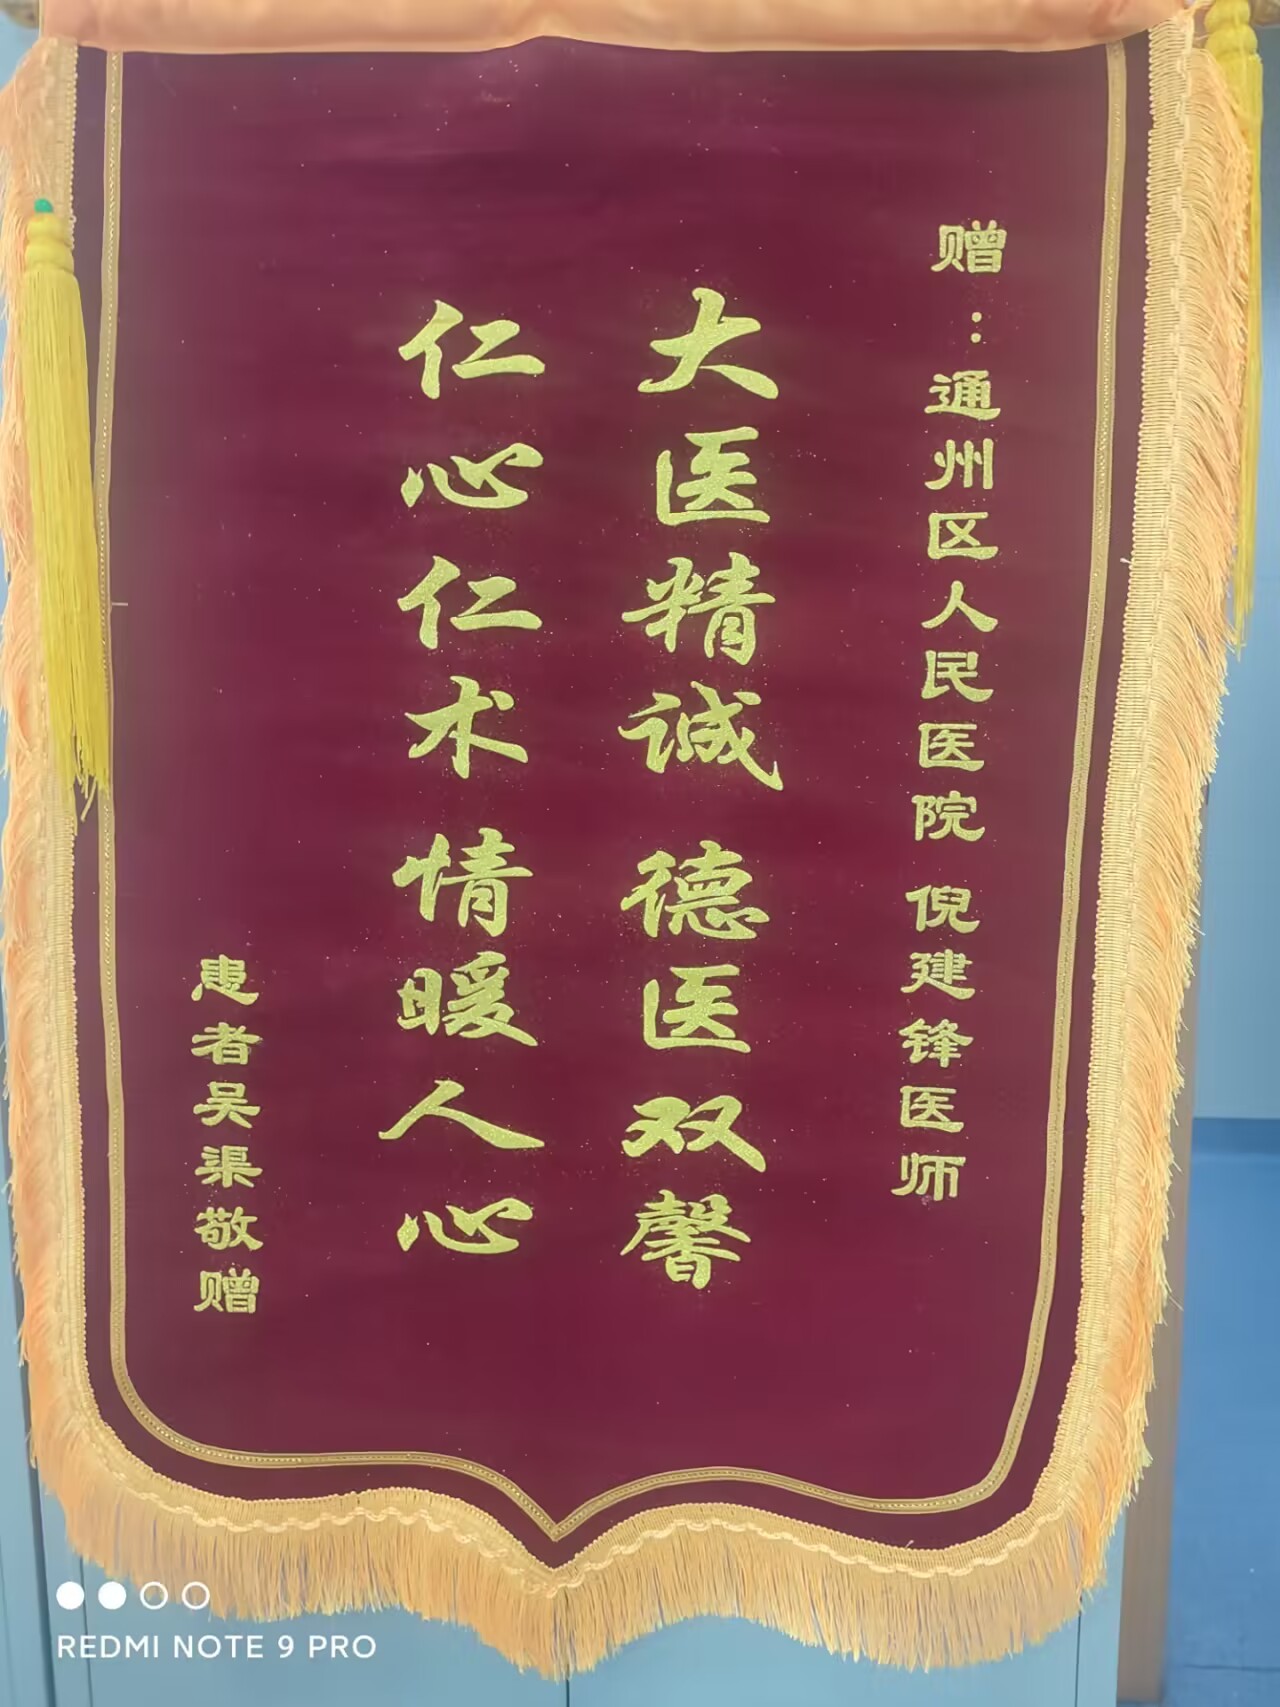 赠：通州区人民医院 倪建锋医师
大医精诚 德医双馨
仁心仁术 情暖人心
患者吴渠敬赠
REDMI NOTE 9 PRO